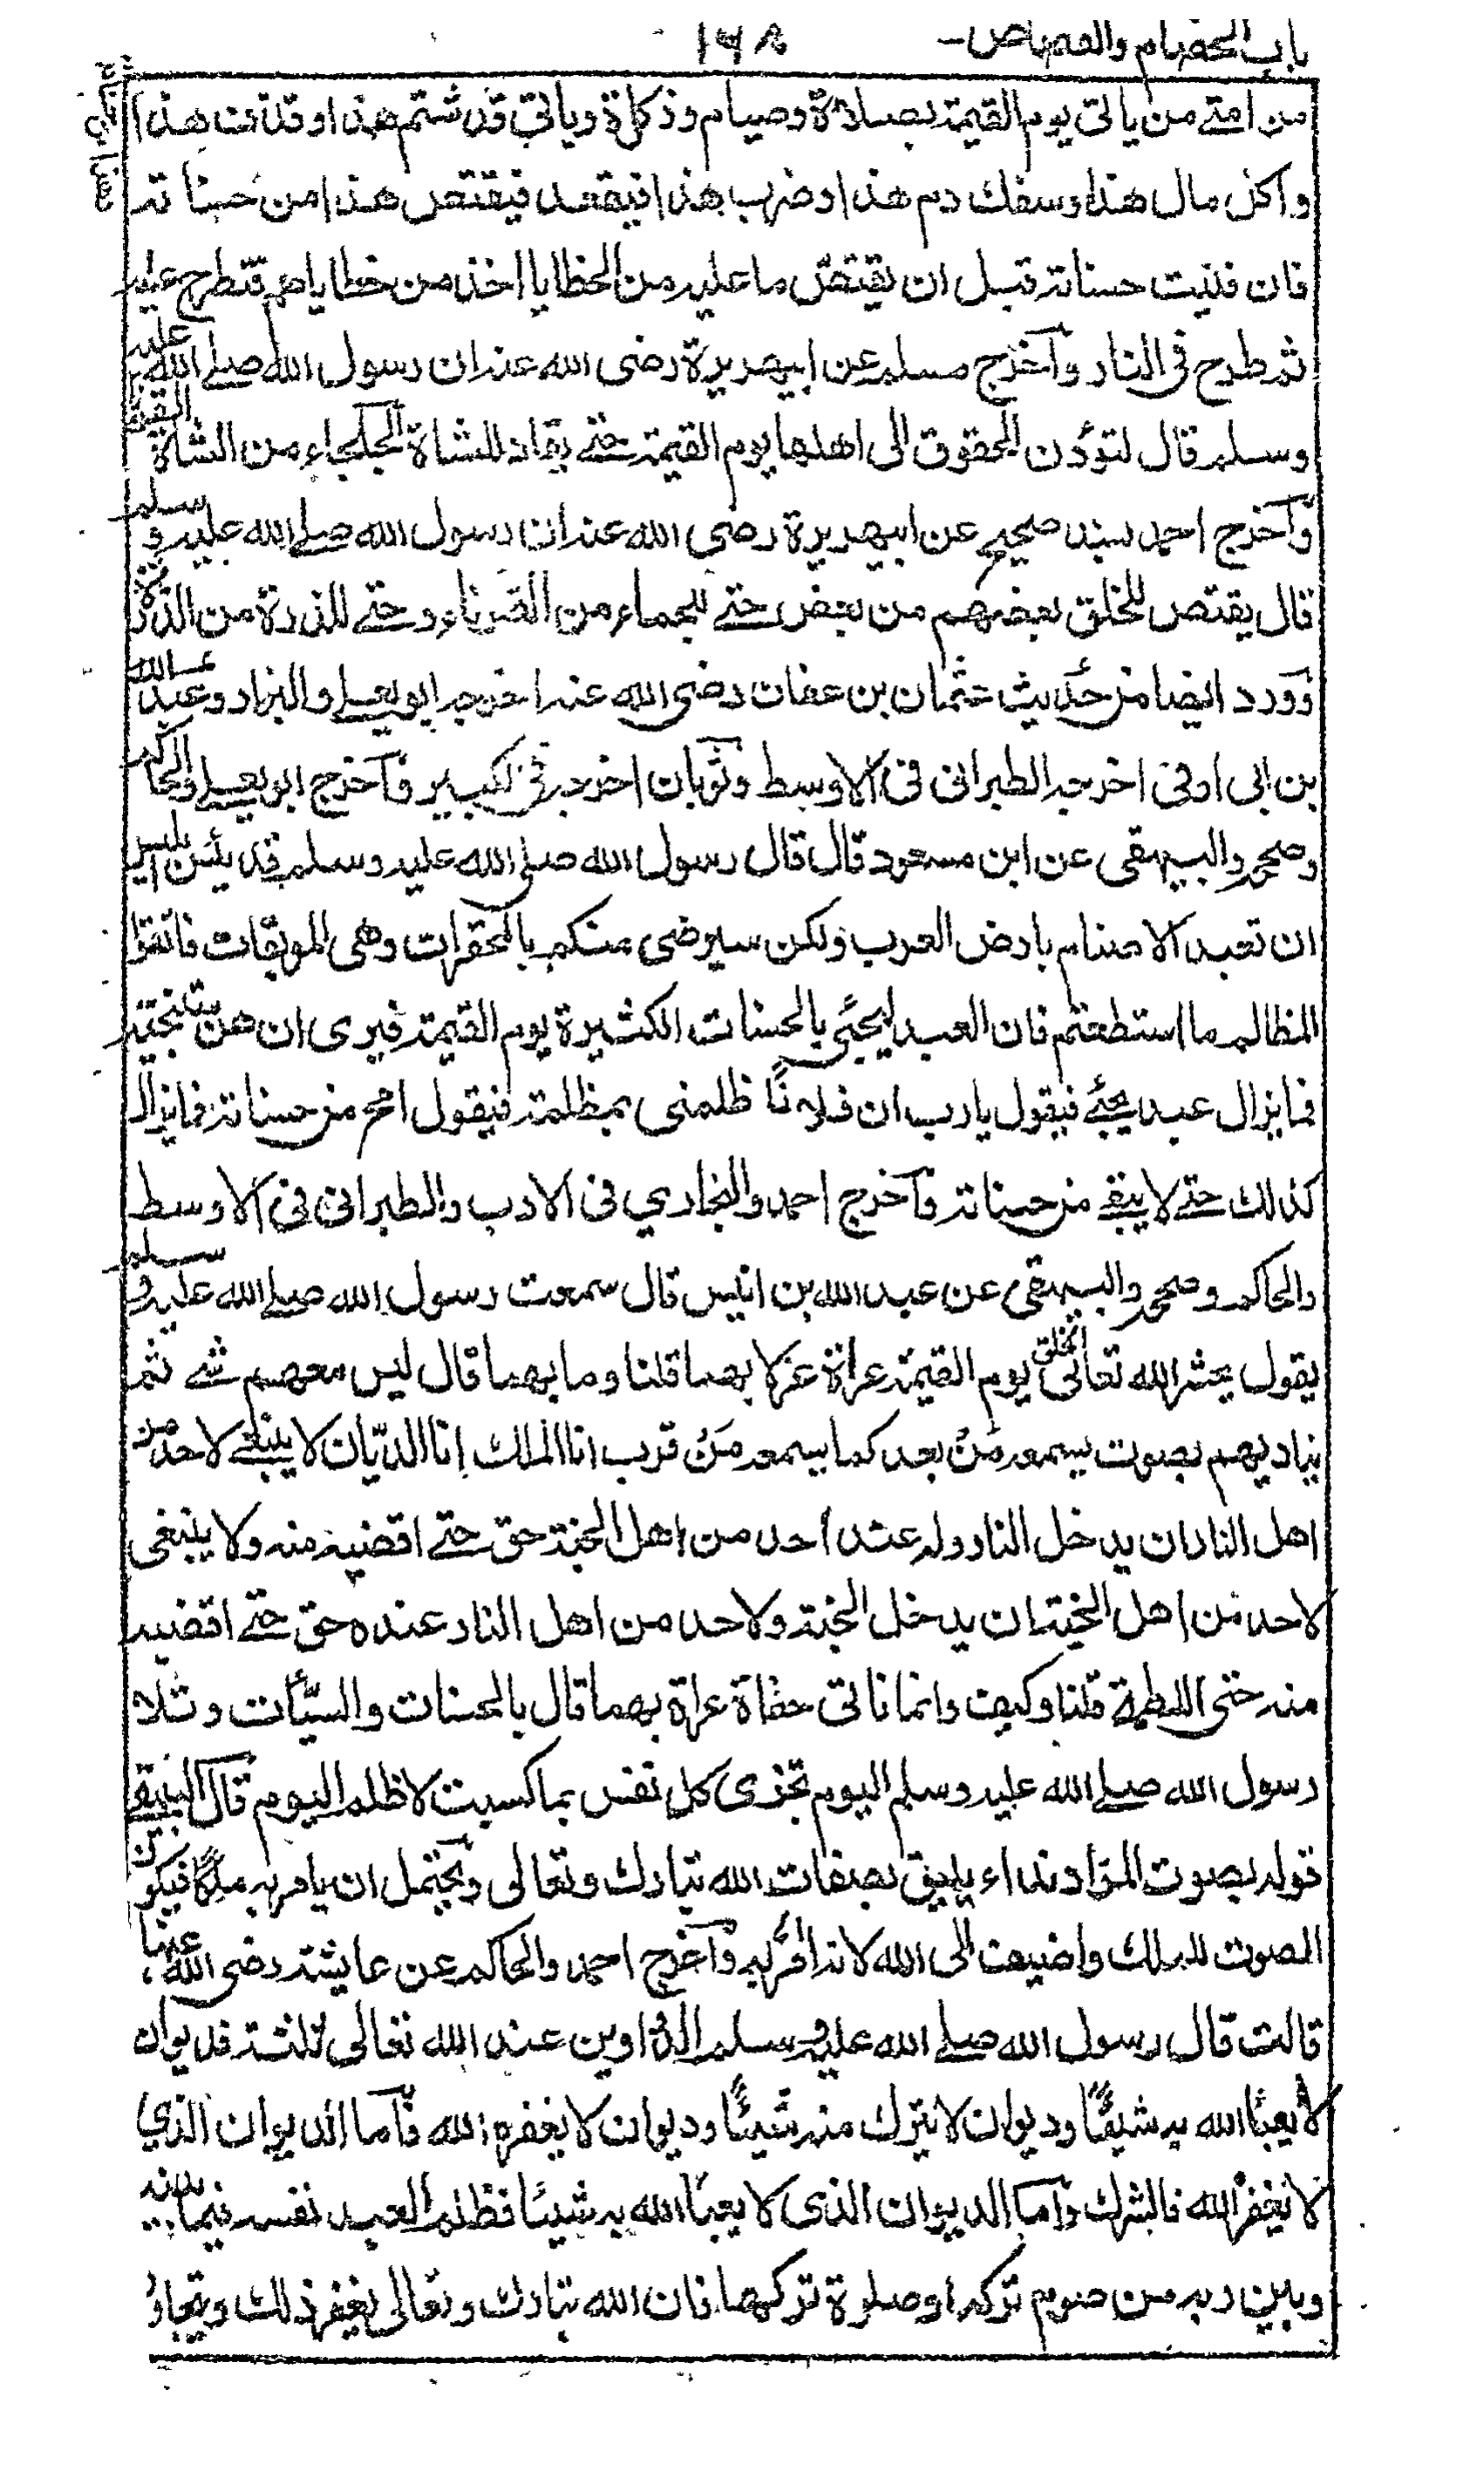 باب الخصام والقصاص ــ ١٦٨
من امتے من یاتی یوم القیمۃ بصلاۃ وصیام وزکاۃ ویاتی قد شتم هذا وقذف هذا
واکل مال هذا وسفك دم هذا وضرب هذا فیقعد فیقتص هذا من حسناتہ
فان فنیت حسناتہ قبل ان یقتص ما علیہ من الخطایا اخذ من خطایاهم فتطرح علیہ
ثم طرح فی النار وآخرج مسلم عن ابیهریرۃ رضی اللہ عنہ ان رسول اللہ صلے اللہ علیہ
وسلم قال لتؤدن الحقوق الی اهلها یوم القیمۃ حتے یقاد للشاۃ الجلجاء من الشاۃ القرناء
وآخرج احمد بسند صحیح عن ابیهریرۃ رضی اللہ عنہ ان رسول اللہ صلے اللہ علیہ وسلم
قال یقتص للخلق بعضهم من بعض حتے للجماء من القرناء وحتے للذرۃ من الذرۃ
وورد ایضا من حدیث عثمان بن عفان رضی اللہ عنہ اخرجہ ابو یعلے والبزار وعبد اللہ
بن ابی اوفی اخرجہ الطبرانی فی الاوسط وثوبان اخرجہ فی الکبیر وآخرج ابو یعلے والحاکم
وصححہ والبیهقی عن ابن مسعود قال قال رسول اللہ صلی اللہ علیہ وسلم قد یئس ابلیس
ان تعبد الاصنام بارض العرب ولکن سیرضی منکم بالمحقرات وهی الموبقات فاتقوا
المظالم ما استطعتم فان العبد لیجئی بالحسنات الکثیرۃ یوم القیمۃ فیری ان هن ستنجیہ
فما یزال عبد یجئے فیقول یا رب ان فلانًا ظلمنی بمظلمۃ فیقول امح من حسناتہ فما یزال
کذالك حتے لا یبقے من حسناتہ وآخرج احمد والبخاری فی الادب والطبرانی فی الاوسط
والحاکم وصححہ والبیهقی عن عبد اللہ بن انیس قال سمعت رسول اللہ صلے اللہ علیہ وسلم
یقول یحشر اللہ تعالی الخلق یوم القیمۃ عراۃ غرلا بهما قلنا وما بهما قال لیس معهم شے ثم
ینادیهم بصوت یسمعہ من بعد کما یسمعہ من قرب انا الملك انا الدیّان لا ینبغے لاحد من
اهل النار ان یدخل النار ولہ عند احد من اهل الجنۃ حق حتے اقضیہ منہ ولا ینبغی
لاحد من اهل الجنۃ ان یدخل الجنۃ ولاحد من اهل النار عندہ حق حتے اقضیہ
منہ حتی اللطمۃ قلنا وکیف وانما ناتی حفاۃ عراۃ بهما قال بالحسنات والسیّاٰت وتلا
رسول اللہ صلے اللہ علیہ وسلم الیوم تجزی کل نفس بما کسبت لا ظلم الیوم قال البیهقے
قولہ بصوت المراد نداء یلیق بصفات اللہ تبارك وتعالی ویحتمل ان یامر بہ ملکًا فیکون
الصوت للملك واضیف الی اللہ لانہ امر بہ وآخرج احمد والحاکم عن عایشۃ رضی اللہ عنها
قالت قال رسول اللہ صلے اللہ علیہ وسلم الدواوین عند اللہ تعالی ثلثۃ فدیوان
لا یعبأ اللہ بہ شیئًا ودیوان لا یترك منہ شیئًا ودیوان لا یغفرہ اللہ فآما الدیوان الذی
لا یغفر اللہ فالشرك وآما الدیوان الذی لا یعبأ اللہ بہ شیئا فظلم العبد نفسہ فیما بینہ
وبین ربہ من صوم ترکہ او صلوۃ ترکها فان اللہ تبارك وتعالی یغفر ذلك ویتجاوز